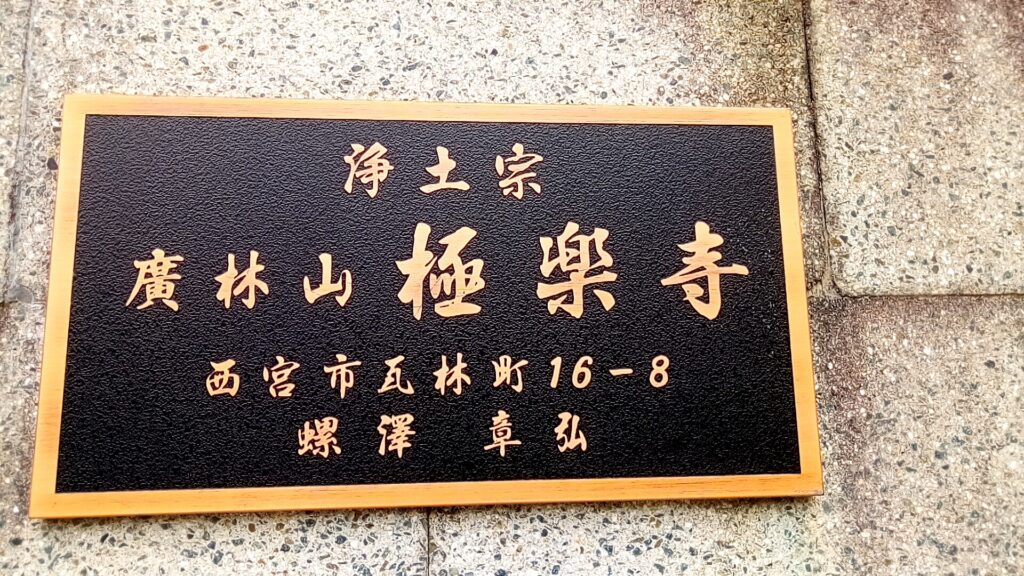 浄土宗
廣林山 極楽寺
西宮市瓦林町16-8
螺澤 章弘